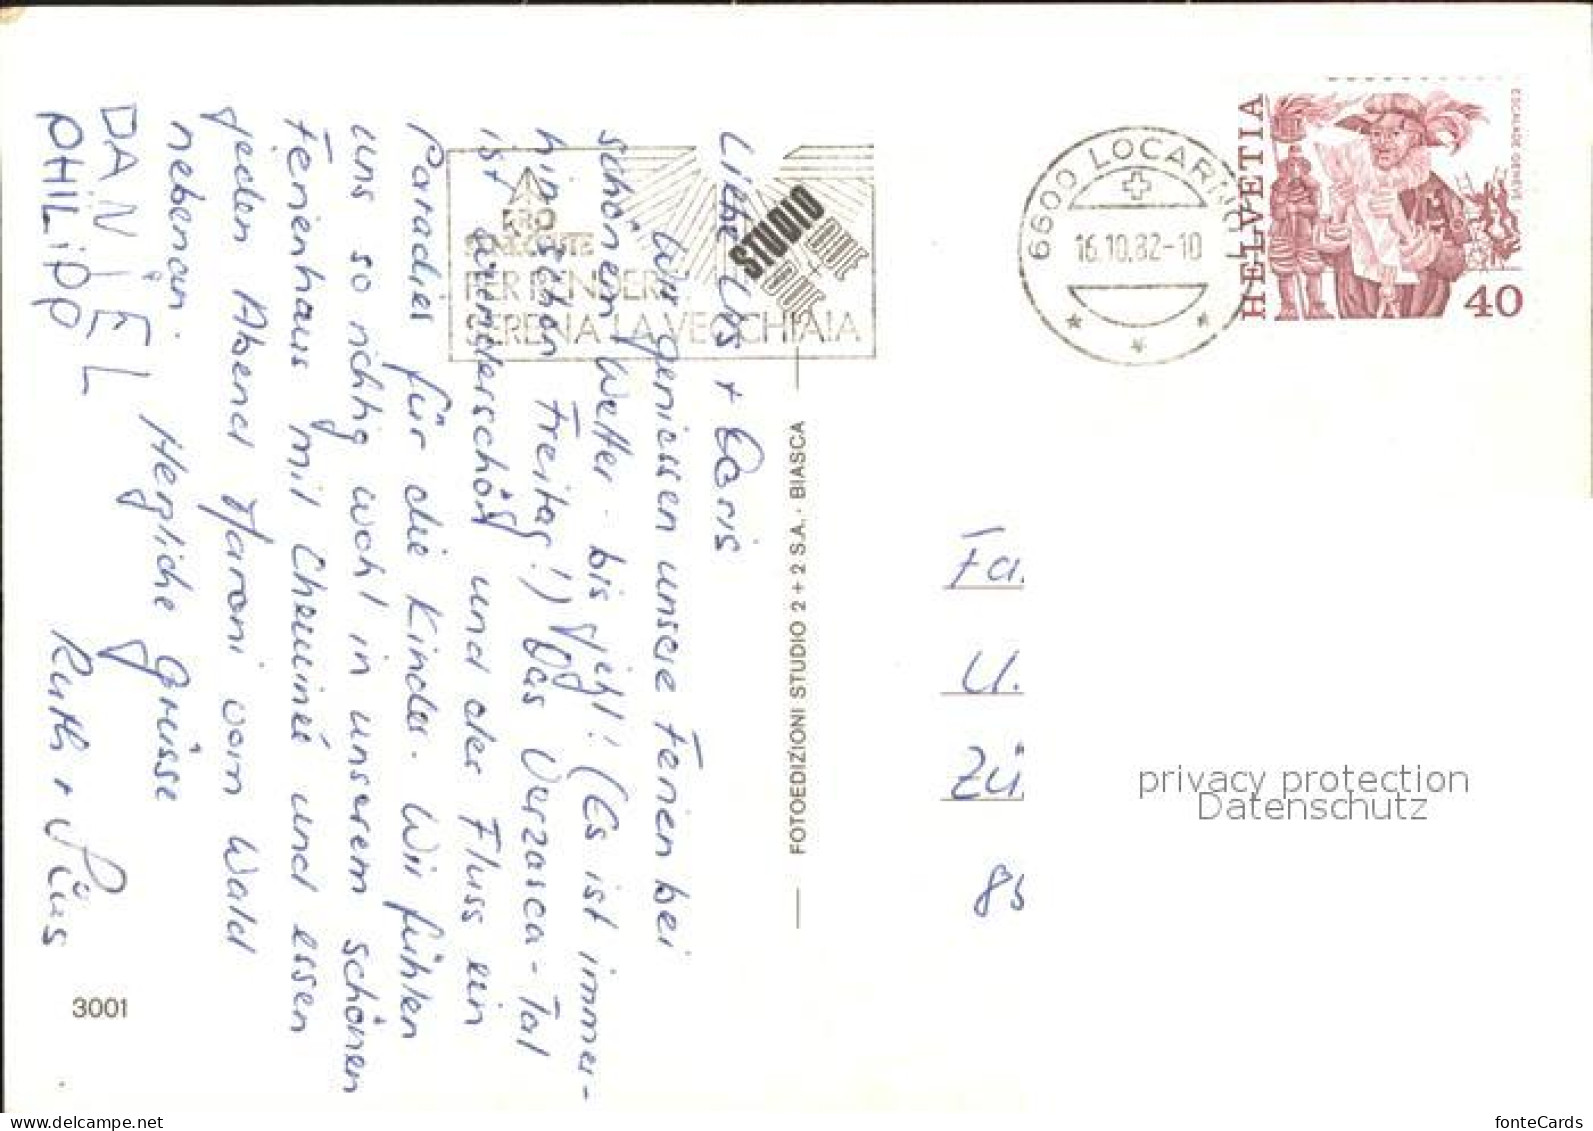 Liebe Urs + Doris
Wir geniessen unsere Ferien bei
schönem Wetter - bis jetzt! (Es ist immer-
hin schon Freitag!) Das Verzasca-Tal
ist wunderschön und der Fluss ein
Paradies für die Kinder. Wir fühlen
uns so richtig wohl in unserem schönen
Ferienhaus mit Cheminée und essen
jeden Abend Maroni vom Wald
nebenan.
Herzliche Grüsse
DANiEL
PHiLiPP
Ruth +
3001
FOTOEDIZIONI STUDIO 2 + 2 S.A. · BIASCA
STUDIO
DUE
+
DUE
PRO
SENECTUTE
PER RENDERE
SERENA LA VECCHIAIA
6600 LOCARNO 1
16.10.82-10
HELVETIA
ESCALADE GENEVE
40
Fa.
U.
Zü
privacy protection
Datenschutz
fonteCards